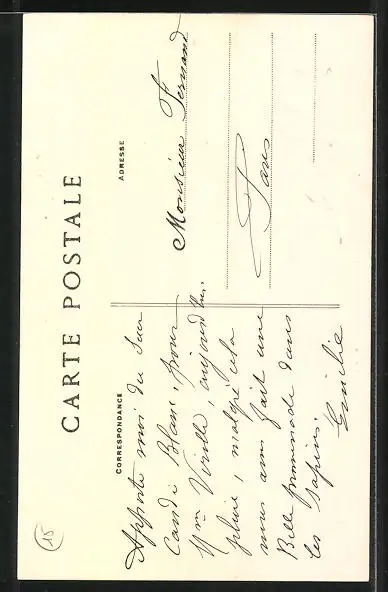 CARTE POSTALE
CORRESPONDANCE
Apporte moi du Sucre
Candi Blanc, pour
Mme Virolle, aujourd'hui
pluie, malgré cela
nous avons fait une
Belle promenade dans
les sapins.
Emilie
ADRESSE
Monsieur Fernand
Paris
15